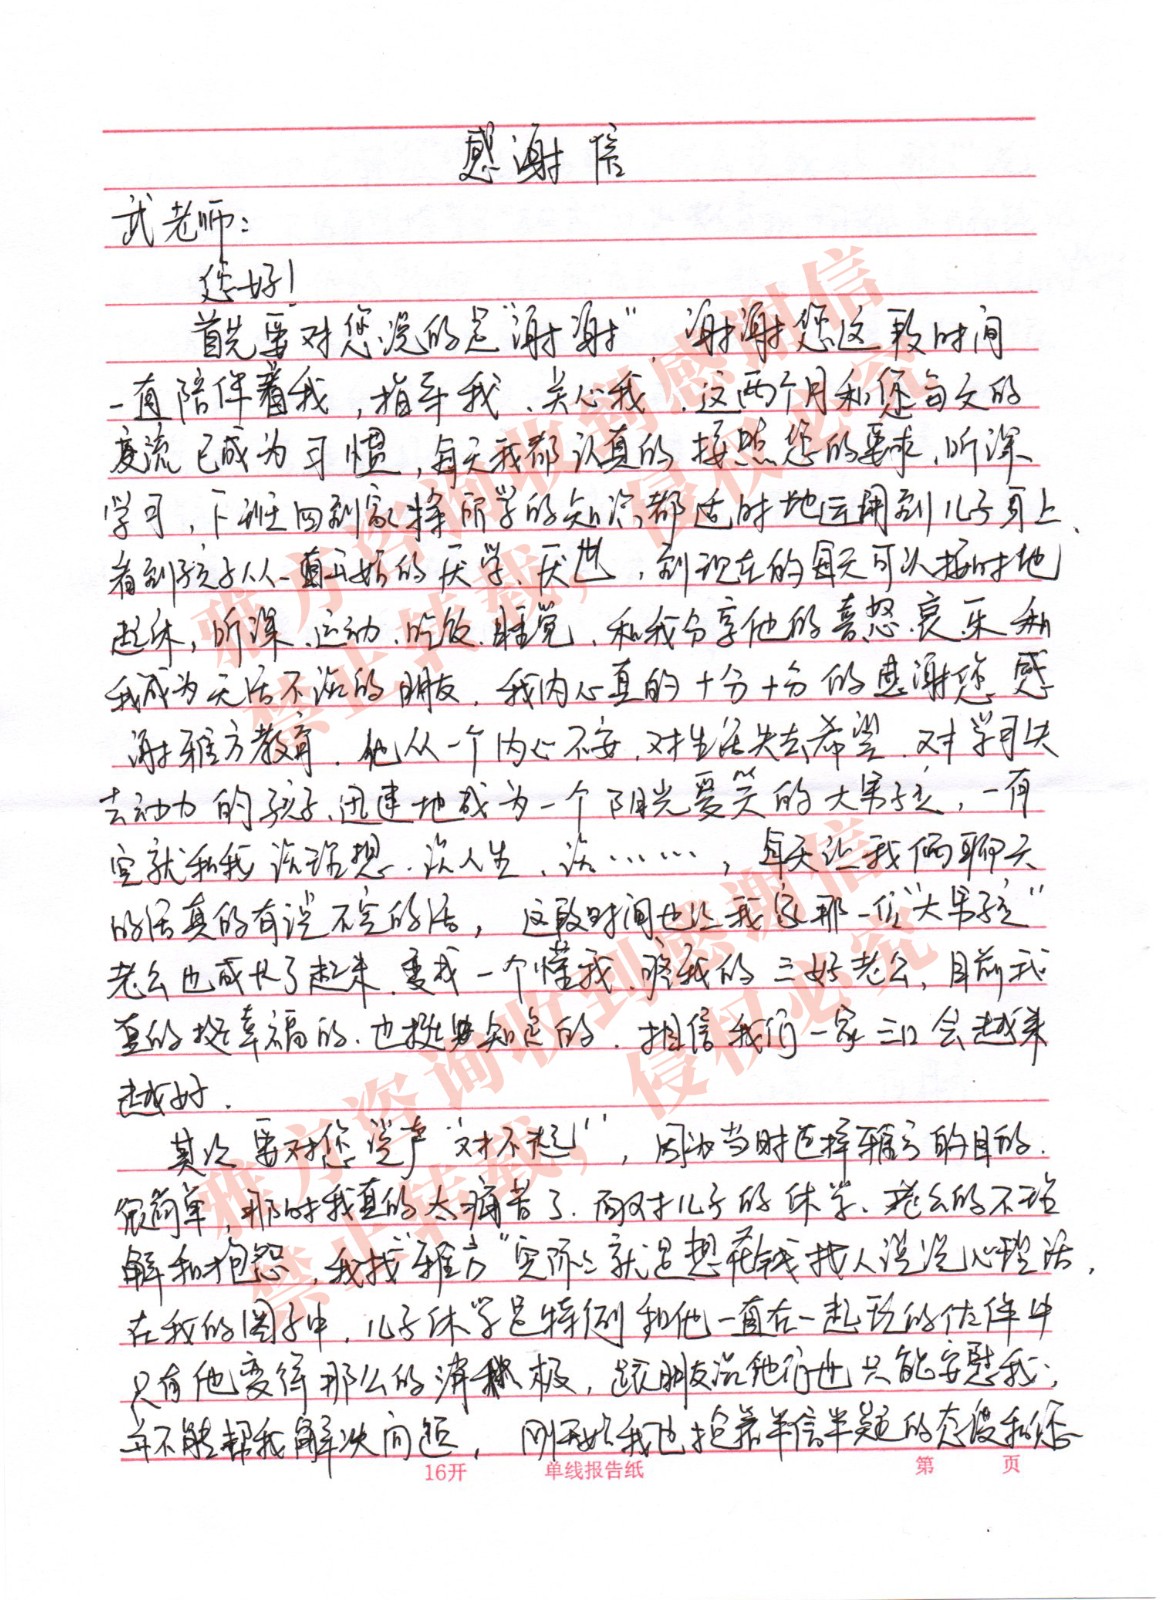 感谢信
武老师：
您好！
首先要对您说的是“谢谢”，谢谢您这段时间
一直陪伴着我，指导我、关心我，这两个月和您每天的
交流已成为习惯，每天我都认真的按照您的要求，听课
学习，下班回到家将所学的知识都适时地运用到儿子身上，
看到孩子从一直开始的厌学、厌世，到现在的每天可以按时地
起床，听课、运动、吃饭、睡觉，和我分享他的喜怒哀乐和
我成为无话不谈的朋友，我内心真的十分十分的感谢您感
谢雅方教育。他从一个内心不安，对生活失去希望，对学习失
去动力的孩子，迅速地成为一个阳光爱笑的大男孩，一有
空就和我谈理想、谈人生、谈……，每天让我俩聊天
的话真的有说不完的话，这段时间也让我家那一位“大男孩”
老公也成长了起来，变成一个懂我、疼我的三好老公，目前我
真的挺幸福的，也挺知足的，相信我们一家三口会越来
越好。
其次要对您说声“对不起”，因为当时选择雅方的目的
很简单，那时我真的太痛苦了，面对儿子的休学、老公的不理
解和抱怨，我找“雅方”实际上就是想花钱找人说说心里话，
在我的圈子中，儿子休学是特例和他一直在一起玩的伙伴中
只有他变得那么的消极，跟朋友说他们也只能安慰我，
并不能帮我解决问题，刚开始我也抱着半信半疑的态度和您
16开 单线报告纸 第 页
雅方咨询收到感谢信
禁止转载，侵权必究
雅方咨询收到感谢信
禁止转载，侵权必究